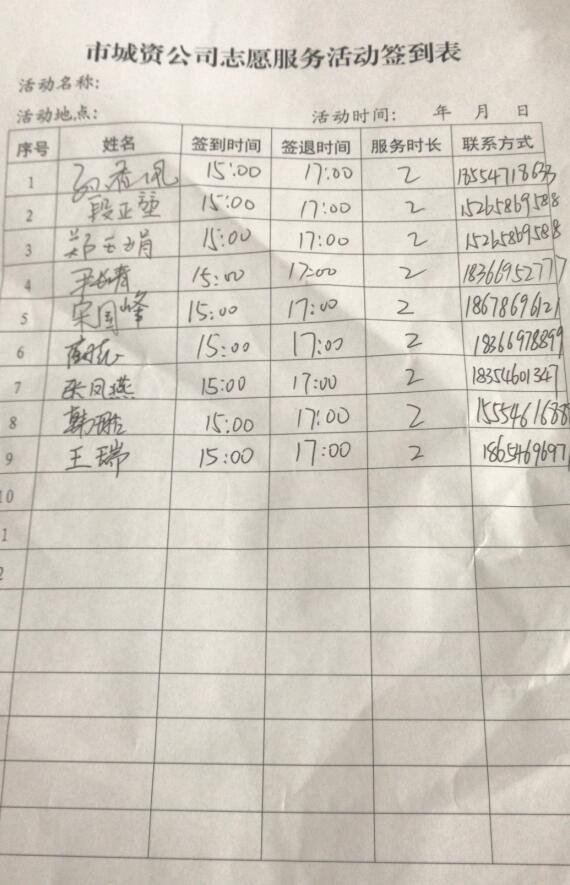 市城资公司志愿服务活动签到表
活动名称:
活动地点: 活动时间: 年 月 日
序号 姓名 签到时间 签退时间 服务时长 联系方式
1 15:00 17:00 2 18554718633
2 段正堃 15:00 17:00 2 15265869588
3 郑玉娟 15:00 17:00 2 15265869588
4 15:00 17:00 2 18366952777
5 宋国峰 15:00 17:00 2 18678696121
6 15:00 17:00 2 18366978899
7 张凤燕 15:00 17:00 2 18354601347
8 韩 15:00 17:00 2
9 王瑞 15:00 17:00 2
10
1
2